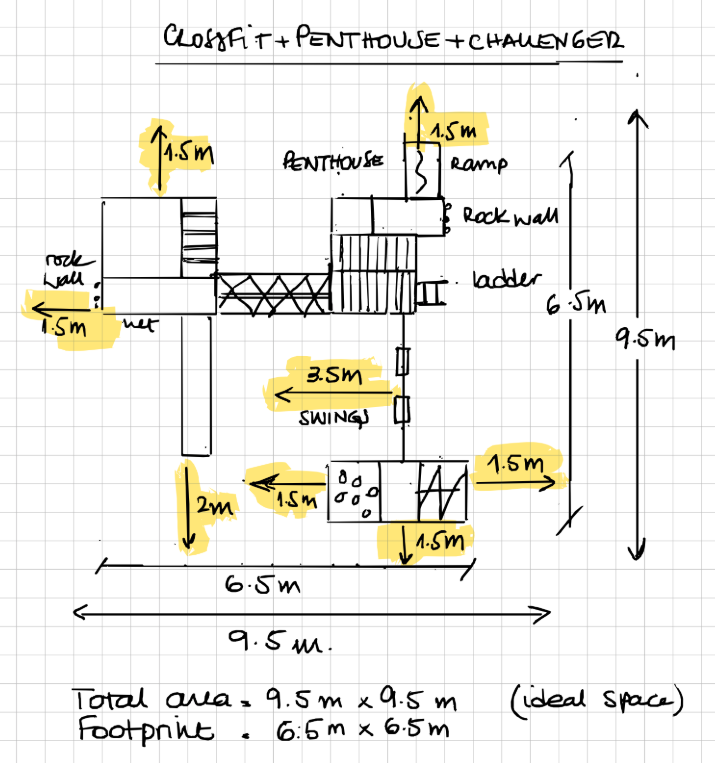 CROSSFIT + PENTHOUSE + CHALLENGER
1.5m
1.5m
PENTHOUSE
Ramp
Rock wall
rock wall
ladder
1.5m
net
6.5m
9.5m
3.5m
SWINGS
1.5m
1.5m
2m
1.5m
6.5m
9.5m.
Total area = 9.5m x 9.5m (ideal space)
Footprint = 6.5m x 6.5m